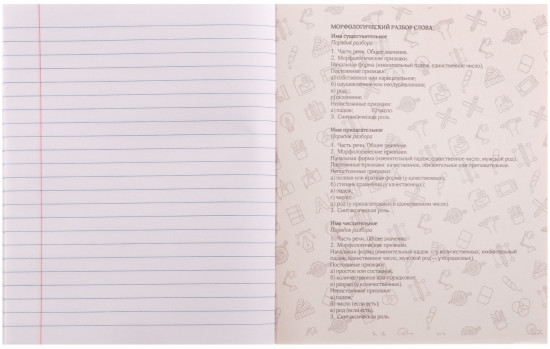 МОРФОЛОГИЧЕСКИЙ РАЗБОР СЛОВА
Имя существительное
Порядок разбора
1. Часть речи. Общее значение.
2. Морфологические признаки.
Начальная форма (именительный падеж, единственное число).
Постоянные признаки:
а) собственное или нарицательное;
б) одушевлённое или неодушевлённое;
в) род;
г) склонение.
Непостоянные признаки:
а) падеж; б) число.
3. Синтаксическая роль.
Имя прилагательное
Порядок разбора
1. Часть речи. Общее значение.
2. Морфологические признаки.
Начальная форма (именительный падеж, единственное число, мужской род).
Постоянные признаки: качественное, относительное или притяжательное.
Непостоянные признаки:
а) полная или краткая форма (у качественных);
б) степень сравнения (у качественных);
в) падеж;
г) число;
д) род (у прилагательных в единственном числе).
3. Синтаксическая роль.
Имя числительное
Порядок разбора
1. Часть речи. Общее значение.
2. Морфологические признаки.
Начальная форма (именительный падеж — у количественных, именительный
падеж, единственное число, мужской род — у порядковых).
Постоянные признаки:
а) простое или составное;
б) количественное или порядковое;
в) разряд (у количественных).
Непостоянные признаки:
а) падеж;
б) число (если есть);
в) род (если есть).
3. Синтаксическая роль.